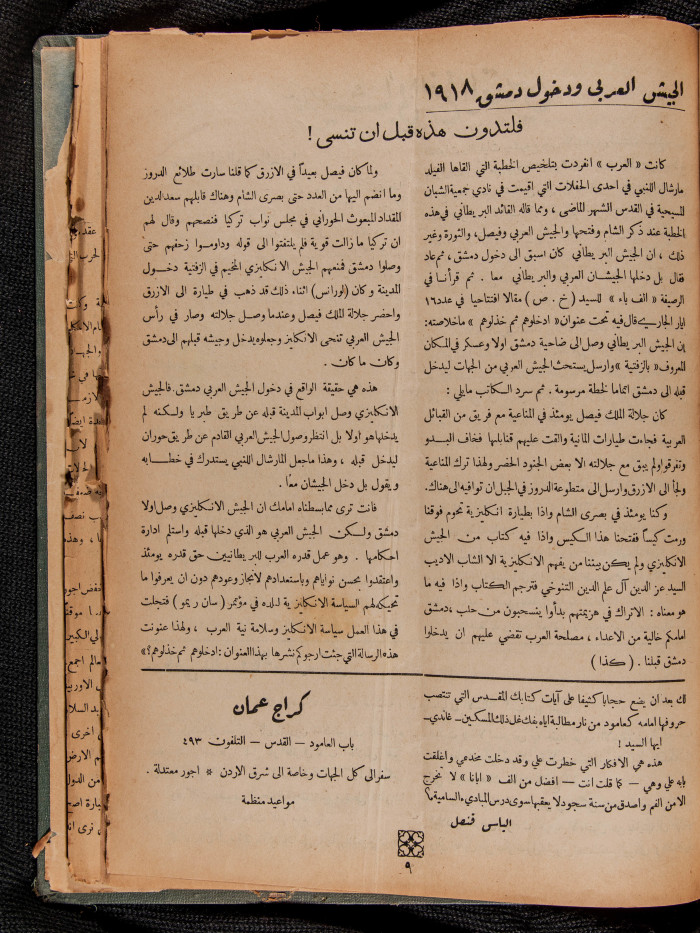 الجيش العربي ودخول دمشق ١٩١٨
فلتدون هذه قبل ان تنسى !
كانت « العرب » انفردت بتلخيص الخطبة التي القاها الفيلد
مارشال اللنبي في احدى الحفلات التي اقيمت في نادي جمعية الشبان
المسيحية في القدس الشهر الماضي ، ومما قاله القائد البريطاني في هذه
الخطبة عند ذكر الشام وفتحها والجيش العربي وفيصل، والثورة وغير
ذلك ، ان الجيش البريطاني كان اسبق الى دخول دمشق ، ثم عاد
فقال بل دخلها الجيشان العربي والبريطاني معا . ثم قرأنا في
الرصيفة « الف باء » للسيد ( خ . ص ) مقالا افتتاحيا في عدد ١٦
ايار الجاري قال فيه تحت عنوان « ادخلوهم ثم خذلوهم » ما خلاصته:
إن الجيش البريطاني وصل الى ضاحية دمشق اولا وعسكر في المكان
المعروف « بالزفتية » وارسل يستحث الجيش العربي من الجهات ليدخل
قبله الى دمشق اتماما لخطة مرسومة . ثم سرد الكاتب مايلي :
كان جلالة الملك فيصل يومئذ في المناعية مع فريق من القبائل
العربية فجاءت طيارات المانية والقت عليهم قنابلها فخاف البدو
وتفرقوا ولم يبق مع جلالته الا بعض الجنود الحضر ولهذا ترك المناعية
ولجأ الى الازرق وارسل الى متطوعة الدروز في الجبل ان توافيه الى هناك.
وكنا يومئذ في بصرى الشام واذا بطيارة انكليزية تحوم فوقنا
ورمت كيسا ففتحنا هذا الكيس واذا فيه كتاب من الجيش
الانكليزي ولم يكن بيننا من يفهم الانكليزية الا الشاب الاديب
السيد عز الدين آل علم الدين التنوخي فترجم الكتاب واذا فيه ما
هو معناه : الاتراك في هزيمتهم بدأوا ينسحبون من حلب ، دمشق
امامكم خالية من الاعداء ، مصلحة العرب تقضي عليهم ان يدخلوا
دمشق قبلنا . ( كذا )
ولما كان فيصل بعيداً في الازرق كما قلنا سارت طلائع الدروز
وما انضم اليها من العدد حتى بصرى الشام وهناك قابلهم سعدالدين
المقداد المبعوث الحوراني في مجلس نواب تركيا فنصحهم وقال لهم
ان تركيا ما زالت قوية فلم يلتفتوا الى قوله وداوموا زحفهم حتى
وصلوا دمشق فمنعهم الجيش الانكليزي المخيم في الزفتية دخول
المدينة وكان ( لورانس ) اثناء ذلك قد ذهب في طيارة الى الازرق
واحضر جلالة الملك فيصل وعندما وصل جلالته وصار في رأس
الجيش العربي تنحى الانكليز وجعلوه يدخل وجيشه قبلهم الى دمشق
وكان ما كان .
هذه هي حقيقة الواقع في دخول الجيش العربي دمشق. فالجيش
الانكليزي وصل ابواب المدينة قبله عن طريق طبريا ولكنه لم
يدخلها هو اولا بل انتظر وصول الجيش العربي القادم عن طريق حوران
ليدخل قبله ، وهذا ما جعل المارشال اللنبي يستدرك في خطابه
ويقول بل دخل الجيشان معاً .
فانت ترى مما بسطناه امامك ان الجيش الانكليزي وصل اولا
دمشق ولكن الجيش العربي هو الذي دخلها قبله واستلم ادارة
احكامها . وهو عمل قدره العرب للبريطانيين حق قدره يومئذ
واعتقدوا بحسن نواياهم وباستعدادهم لانجاز وعودهم دون ان يعرفوا ما
تحيكه لهم السياسة الانكليزية لبلده في مؤتمر ( سان ريمو ) فتجلت
في هذا العمل سياسة الانكليز وسلامة نية العرب ، ولهذا عنونت
هذه الرسالة التي جئت ارجوكم نشرها بهذا العنوان : ادخلوهم ثم خذلوهم؟»
لك بعد ان يضع حجابا كثيفا على آيات كتابك المقدس التي تنتصب
حروفها امامه كعامود من نار مطالبة اياه بفك غل ذلك المسكين – غاندي-
ايها السيد !
هذه هي الافكار التي خطرت علي وقد دخلت مخدعي واغلقت
بابه علي وهي – كما قلت انت – افضل من الف « ابانا » لا تخرج
الا من الفم واصدق من سنة سجود لا يعقبها سوى درس المباديء السامية؟
الياس قنصل
كراج عمان
باب العامود – القدس – التلفون ٤٩٣
سفر الى كل الجهات وخاصة الى شرق الاردن * اجور معتدلة .
مواعيد منظمة
٩